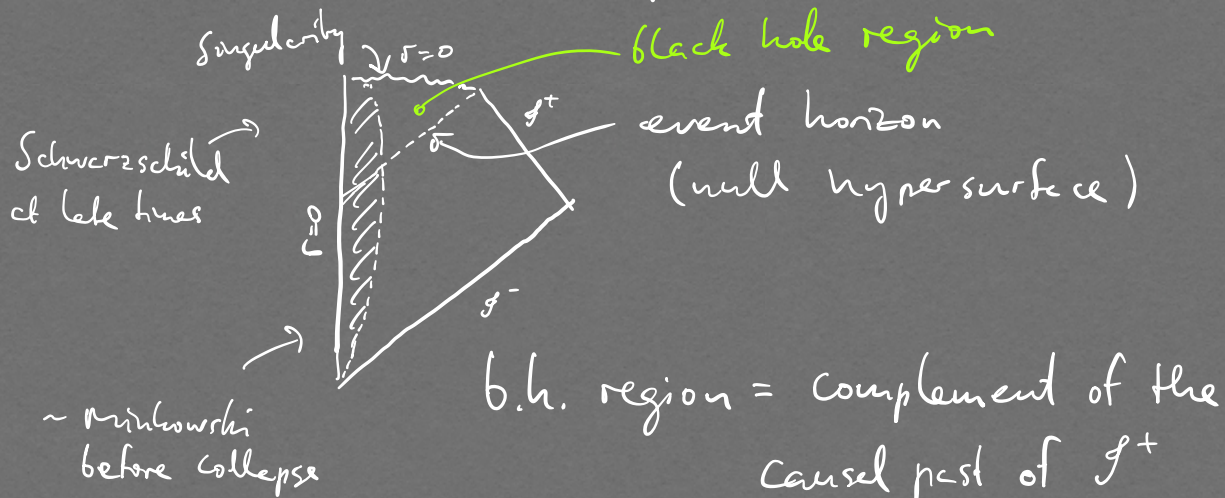 Singularity
r=0
black hole region
𝓘⁺
event horizon
(null hypersurface)
Schwarzschild
at late times
r=0
𝓘⁻
~ Minkowski
before collapse
b.h. region = complement of the
causal past of 𝓘⁺